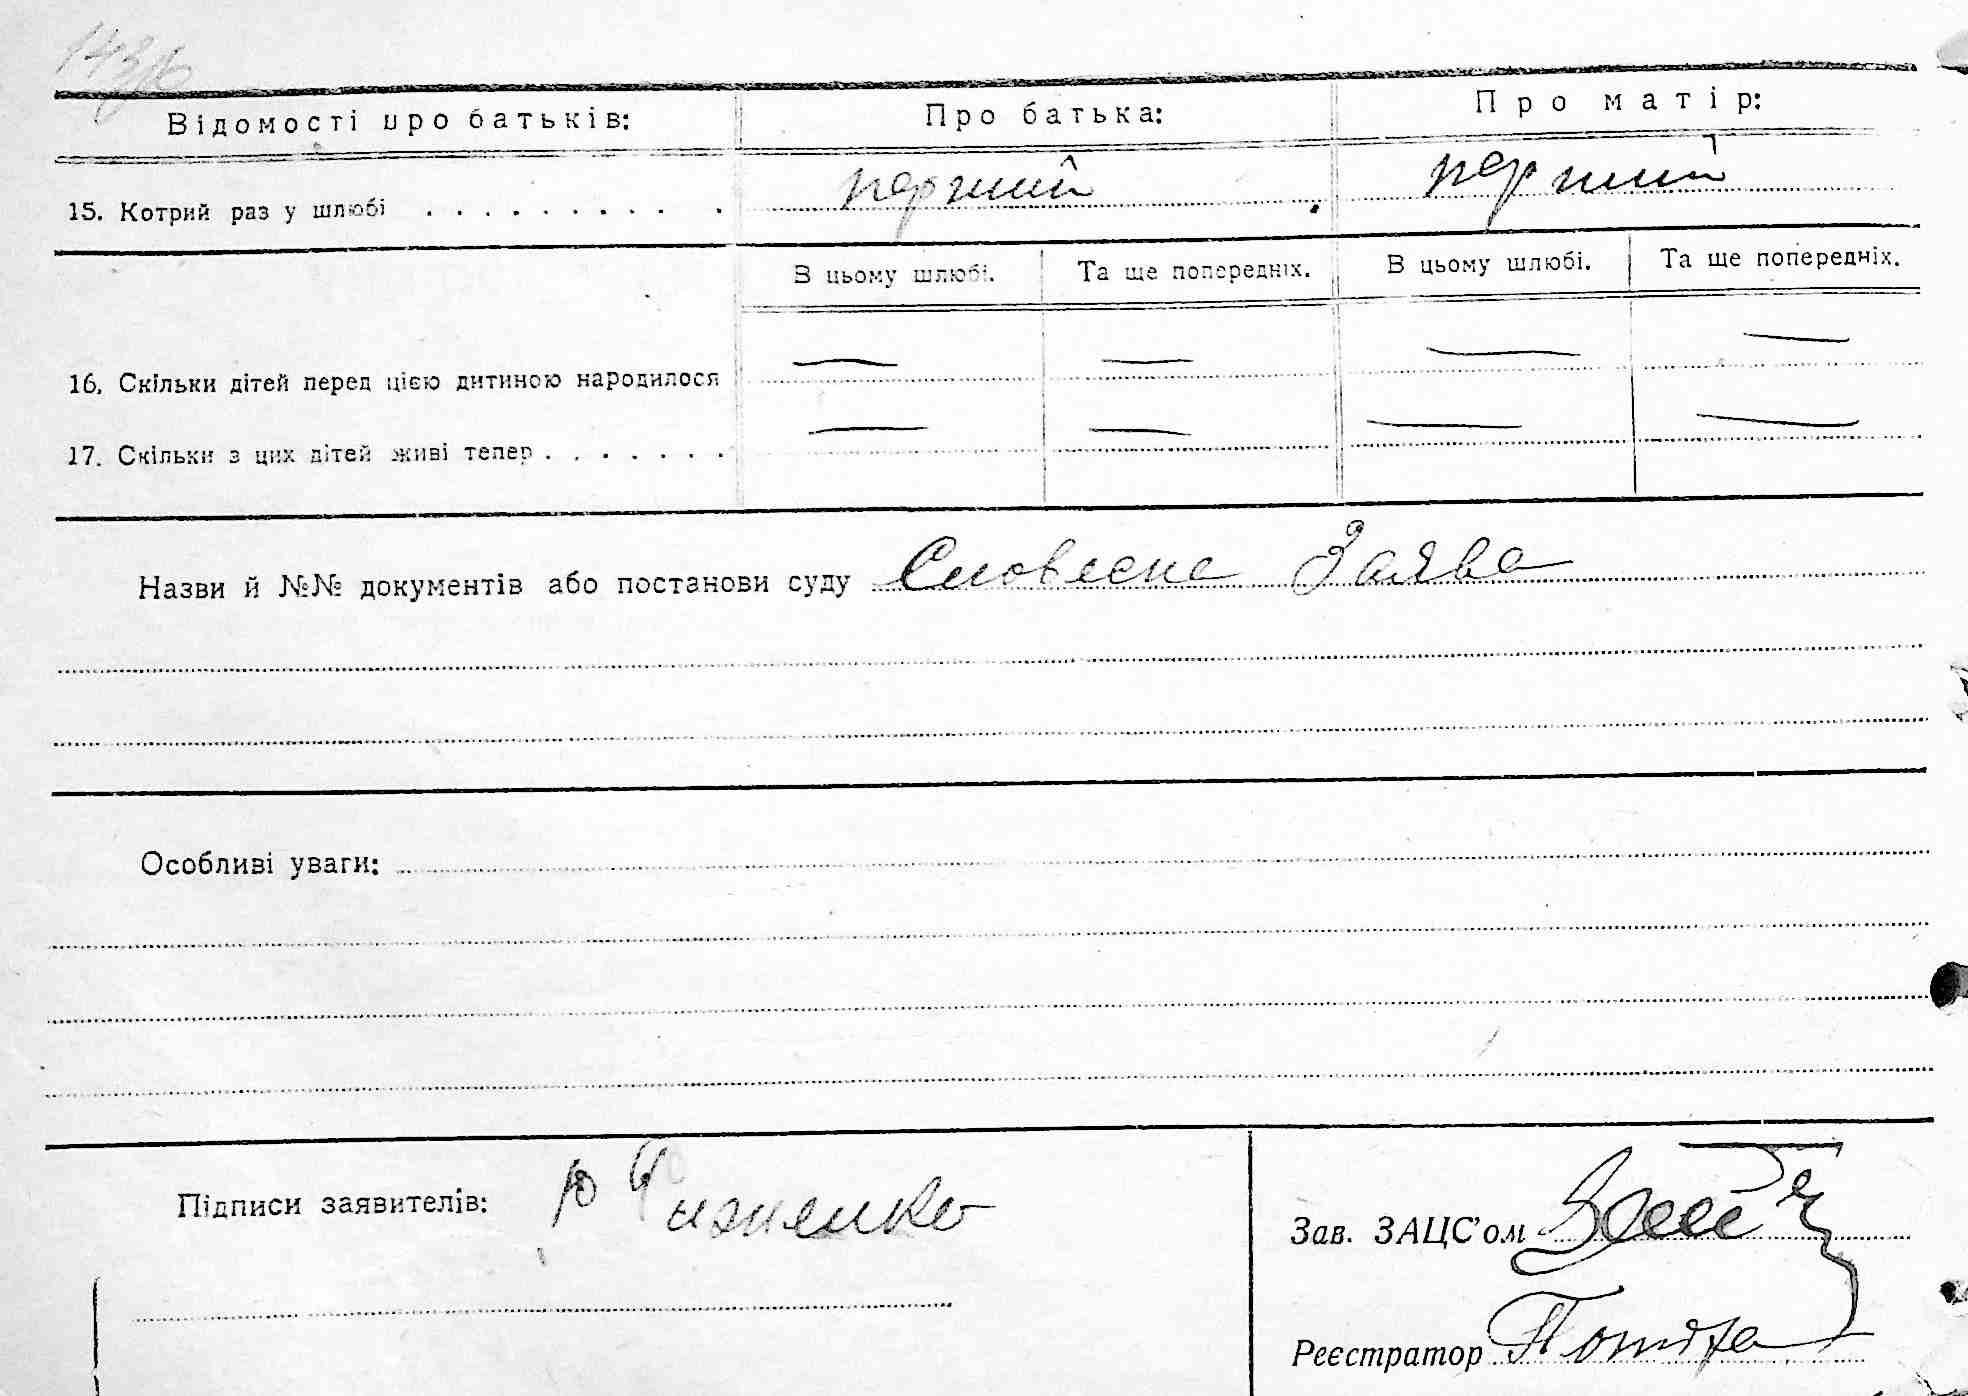 Відомості про батьків: Про батька: Про матір:
15. Котрий раз у шлюбі . . . . . . . . . . перший перший
В цьому шлюбі. Та ще попередніх. В цьому шлюбі. Та ще попередніх.
16. Скільки дітей перед цією дитиною народилося — — — —
17. Скільки з цих дітей живі тепер . . . . . . . — — — —
Назви й №№ документів або постанови суду Словесна Заява
Особливі уваги:
Підписи заявителів:
Зав. ЗАЦС'ом
Реєстратор